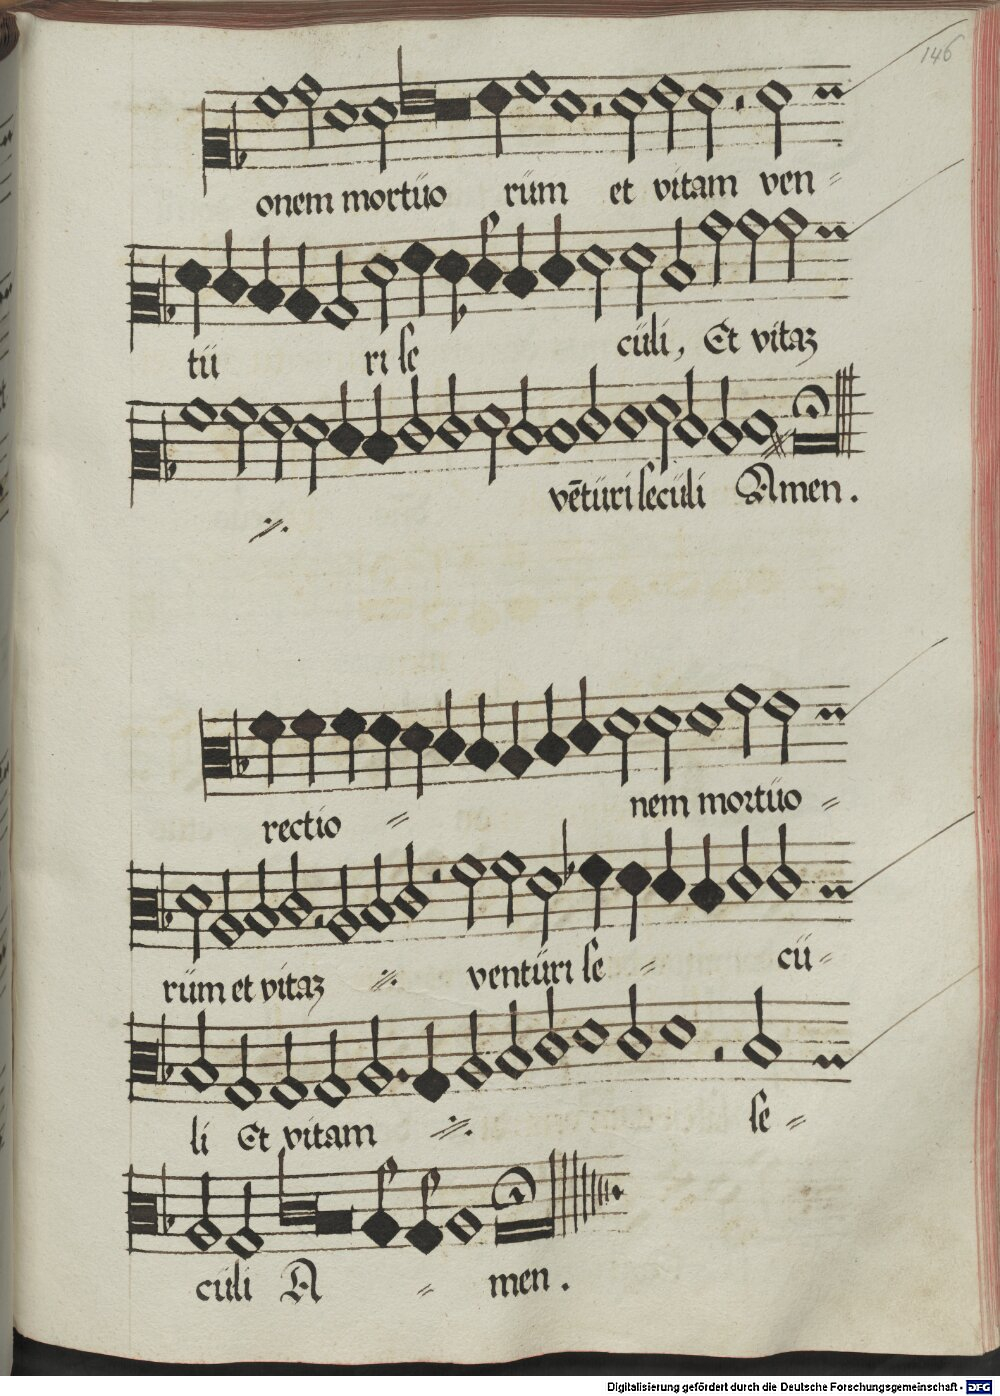 146
onem mortuo rum et vitam ven=
tu ri se culi, Et vitaȝ
vēturi seculi Amen.
·//·
rectio = nem mortuo =
rum et vitaȝ ·//· venturi se = cu=
li Et vitam ·//· se =
culi A = men.
Digitalisierung gefördert durch die Deutsche Forschungsgemeinschaft - DFG